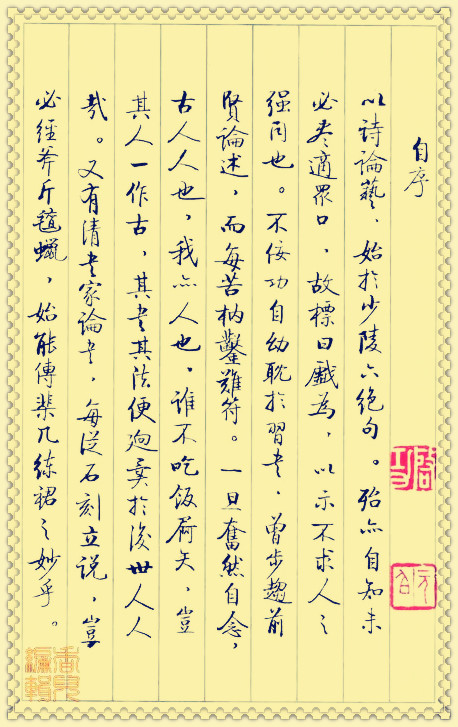 自序
以詩論藝、始於少陵六绝句。殆亦自知未
必尽適眾口，故標曰戲為，以示不求人之
强同也。不佞功自幼耽於習書，曾步趨前
賢論述，而每苦枘鑿難符。一旦奮然自念，
古人人也，我亦人也，誰不吃飯屙矢，豈
其人一作古，其書其法便迥異於後世人人
哉。又有清書家論書，每從石刻立說，豈
必經斧斤氊蠟，始能傳棐几練裙之妙乎。
啟功
元白